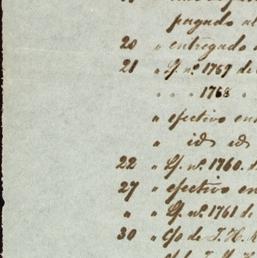 pagado al
20 " entregado
21 " Lf. nº 1769 de
" " " 1768 "
" efectivo en
" id id
22 " Lf. nº 1760. d
27 " efectivo en
" " Lf. nº 1761 de
30 " c/o de J. H.